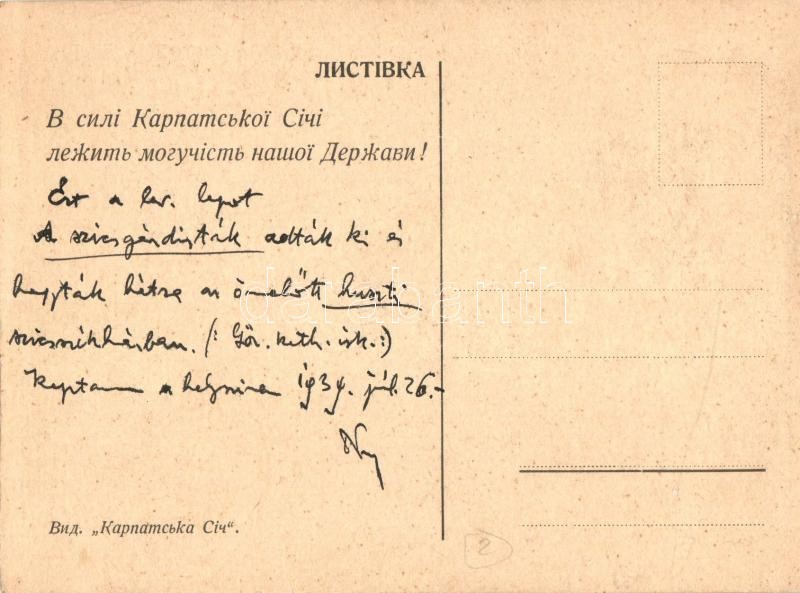 ЛИСТІВКА
В силі Карпатської Січі
лежить могучість нашої Держави!
Ezt a lev. lapot
A szicsgárdisták adták ki és
hagyták hátra az huszti
szicsszékházban. (: Gör. kath. isk. :)
Kaptam a helyszínen 1939. júl. 26.-
Вид. „Карпатська Січ“.
2
darabanth